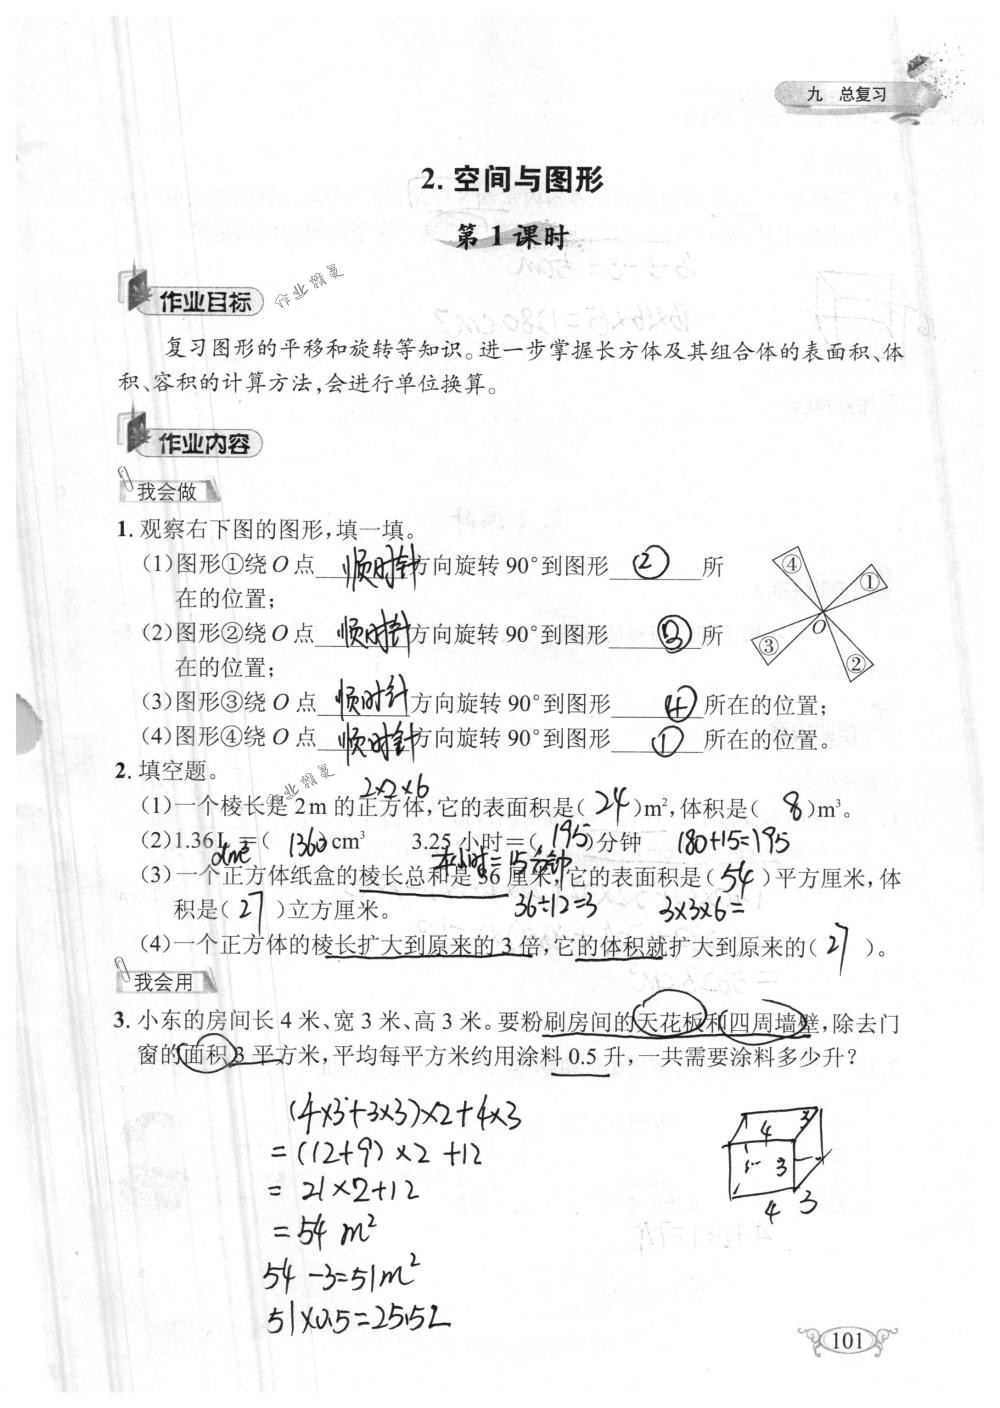 九 总复习
2. 空间与图形
第 1 课时
作业目标
作业精灵
复习图形的平移和旋转等知识。进一步掌握长方体及其组合体的表面积、体
积、容积的计算方法,会进行单位换算。
作业内容
我会做
1. 观察右下图的图形,填一填。
(1)图形①绕 O 点 顺时针 方向旋转 90°到图形 ② 所
在的位置;
(2)图形②绕 O 点 顺时针 方向旋转 90°到图形 ③ 所
在的位置;
④ ① O ③ ②
(3)图形③绕 O 点 顺时针 方向旋转 90°到图形 ④ 所在的位置;
(4)图形④绕 O 点 顺时针 方向旋转 90°到图形 ① 所在的位置。
2. 填空题。
作业精灵
2×2×6
(1)一个棱长是 2 m 的正方体,它的表面积是( 24 )m²,体积是( 8 )m³。
(2)1.36 L =( 1360 )cm³ 3.25 小时=( 195 )分钟 180+15=195
dm³ 小时=15分钟
(3)一个正方体纸盒的棱长总和是 36 厘米,它的表面积是( 54 )平方厘米,体
积是( 27 )立方厘米。 36÷12=3 3×3×6=
(4)一个正方体的棱长扩大到原来的 3 倍,它的体积就扩大到原来的( 27 )。
我会用
3. 小东的房间长 4 米、宽 3 米、高 3 米。要粉刷房间的天花板和四周墙壁,除去门
窗的面积 3 平方米,平均每平方米约用涂料 0.5 升,一共需要涂料多少升?
(4×3+3×3)×2+4×3
=(12+9)×2+12
=21×2+12
=54 m²
54-3=51m²
51×0.5=25.5L
3
4
3
4 3
101